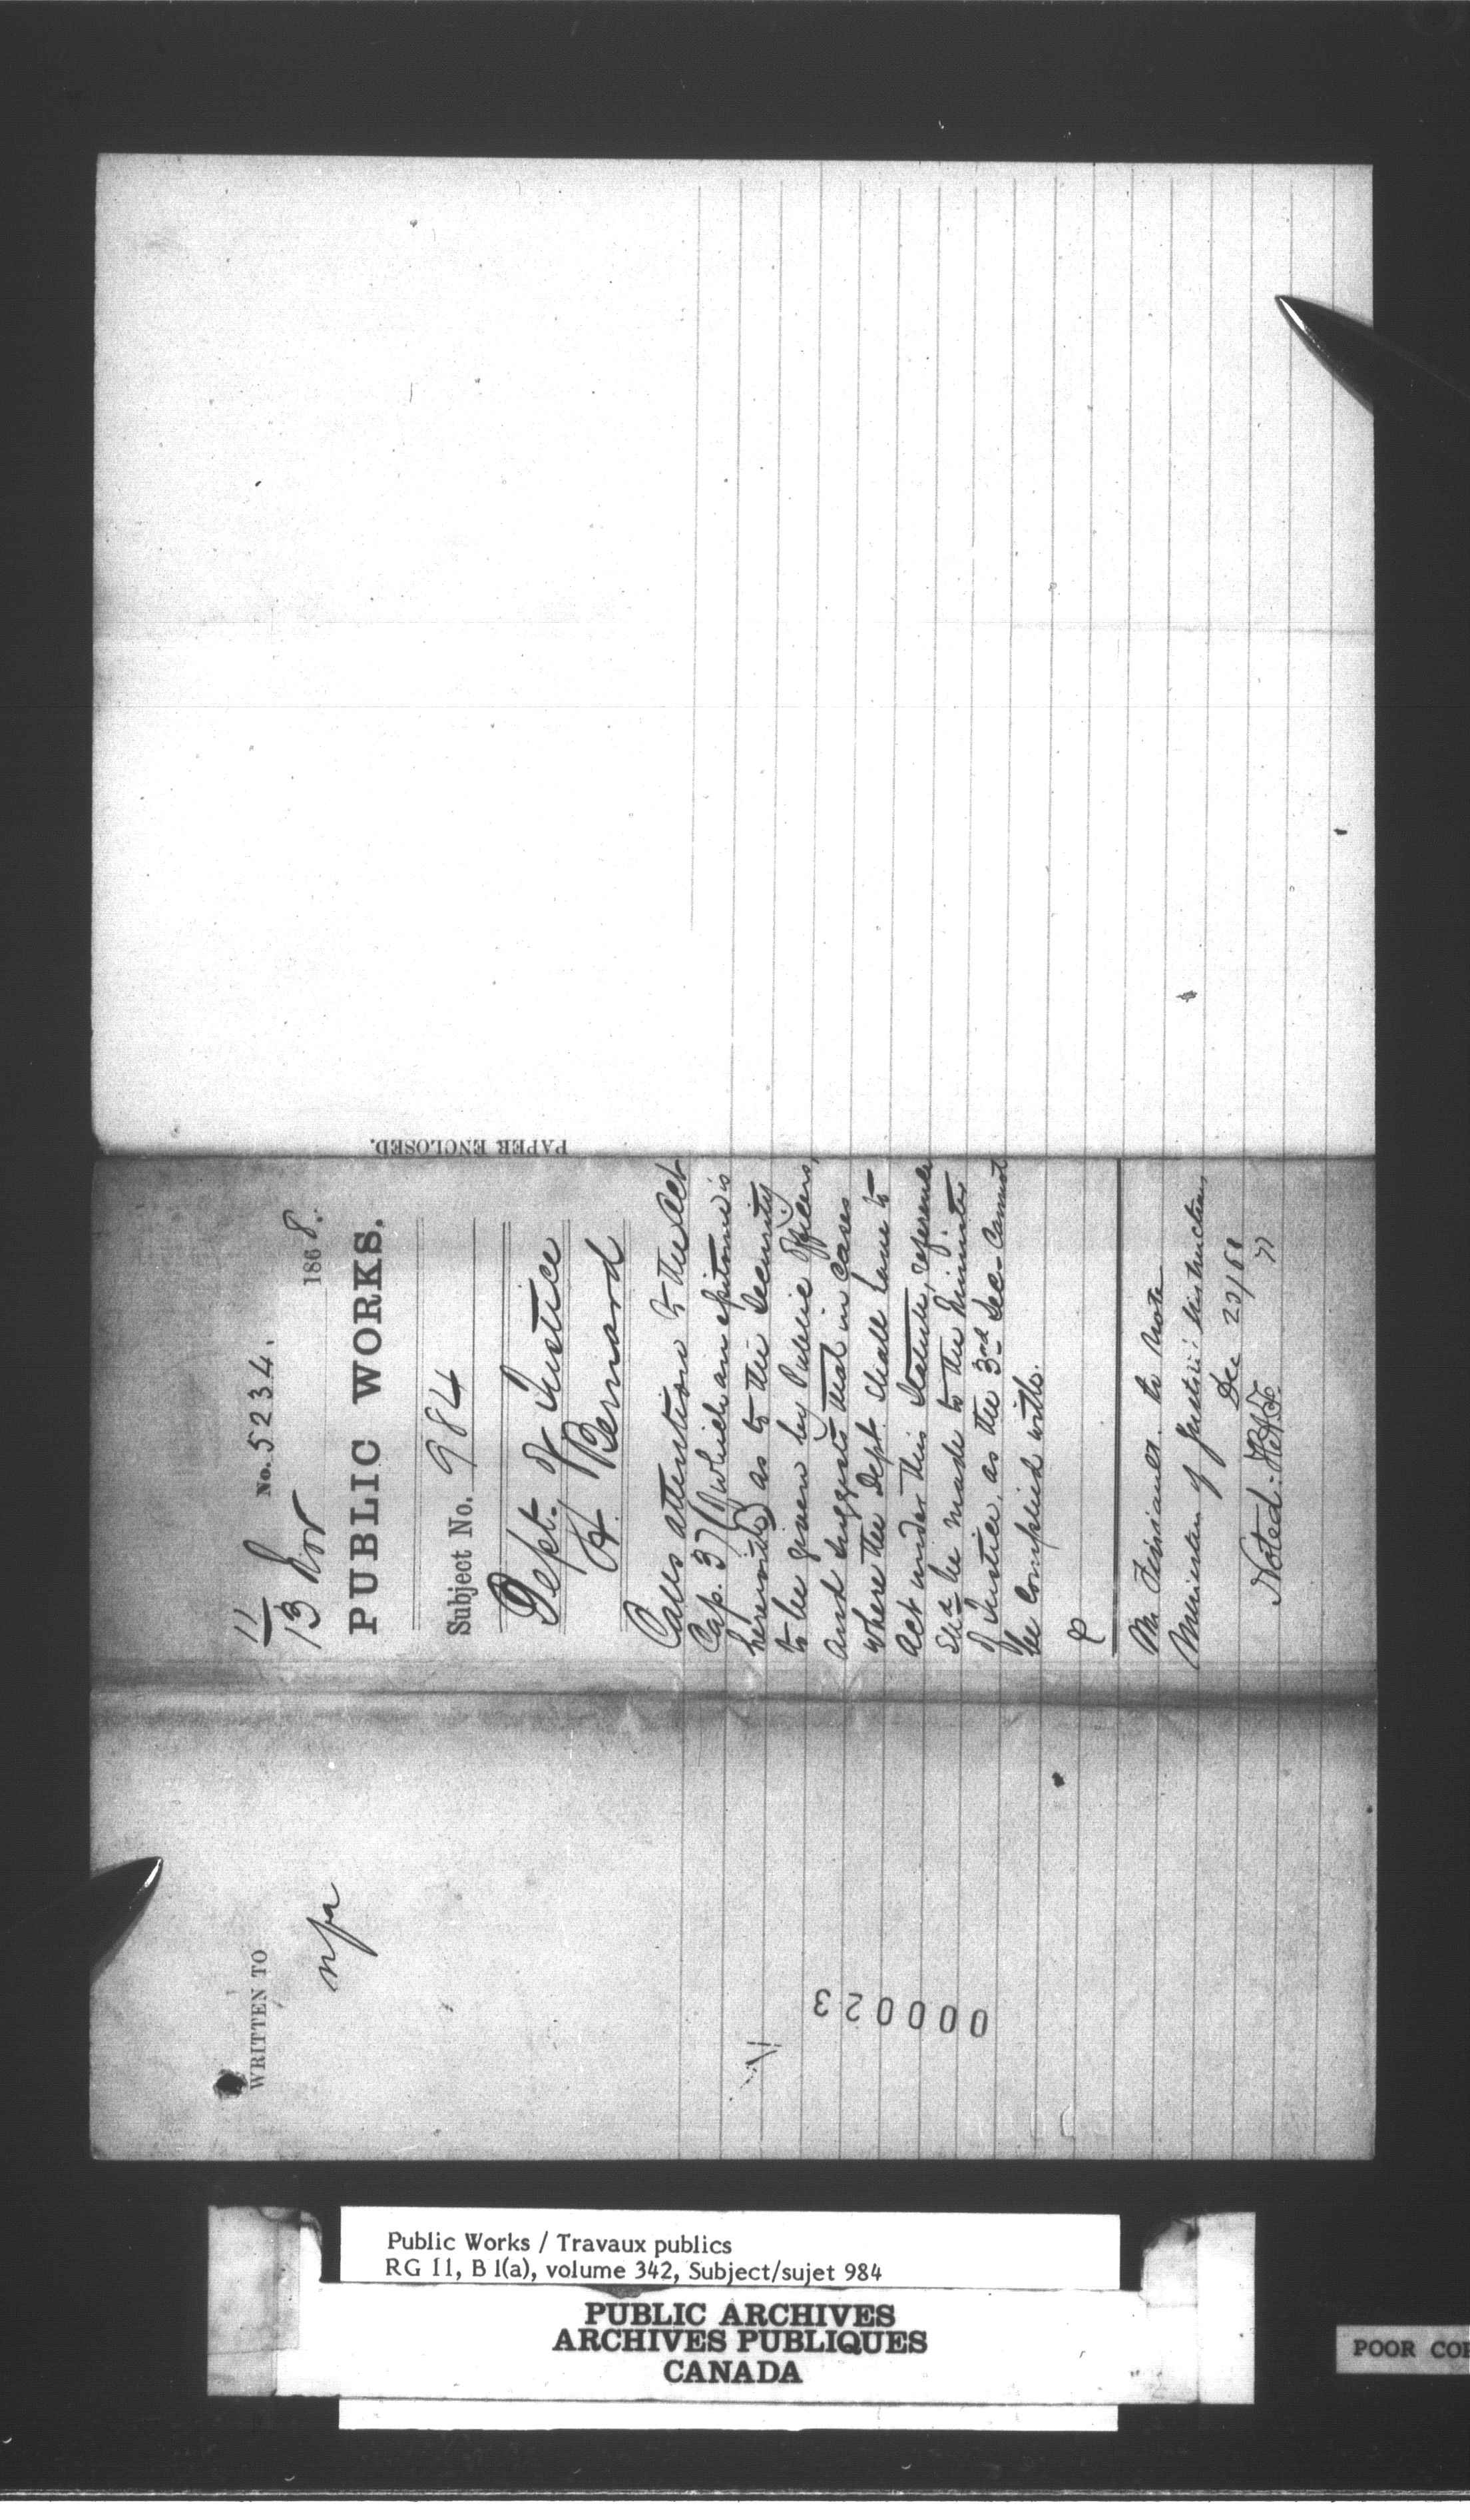 No. 5234.
11/13 Nov 1868.
PUBLIC WORKS.
Subject No. 984
Dept. of Justice
H. Bernard
Calls attention to the Act
Cap. 37 (which an epitome is
herewith) as to the Security
to be given by Public Officers,
and suggests that in cases
where the Dept. shall have to
act under this Statute, reference
shd be made to the Minister
of Justice, as the 3rd Sec. cannot
be complied with.
Mr to note
Minister of Justice's instructions
Dec 23/68
Noted:
PAPER ENCLOSED.
WRITTEN TO
npa
000023
Public Works / Travaux publics
RG 11, B 1(a), volume 342, Subject/sujet 984
PUBLIC ARCHIVES
ARCHIVES PUBLIQUES
CANADA
POOR COP